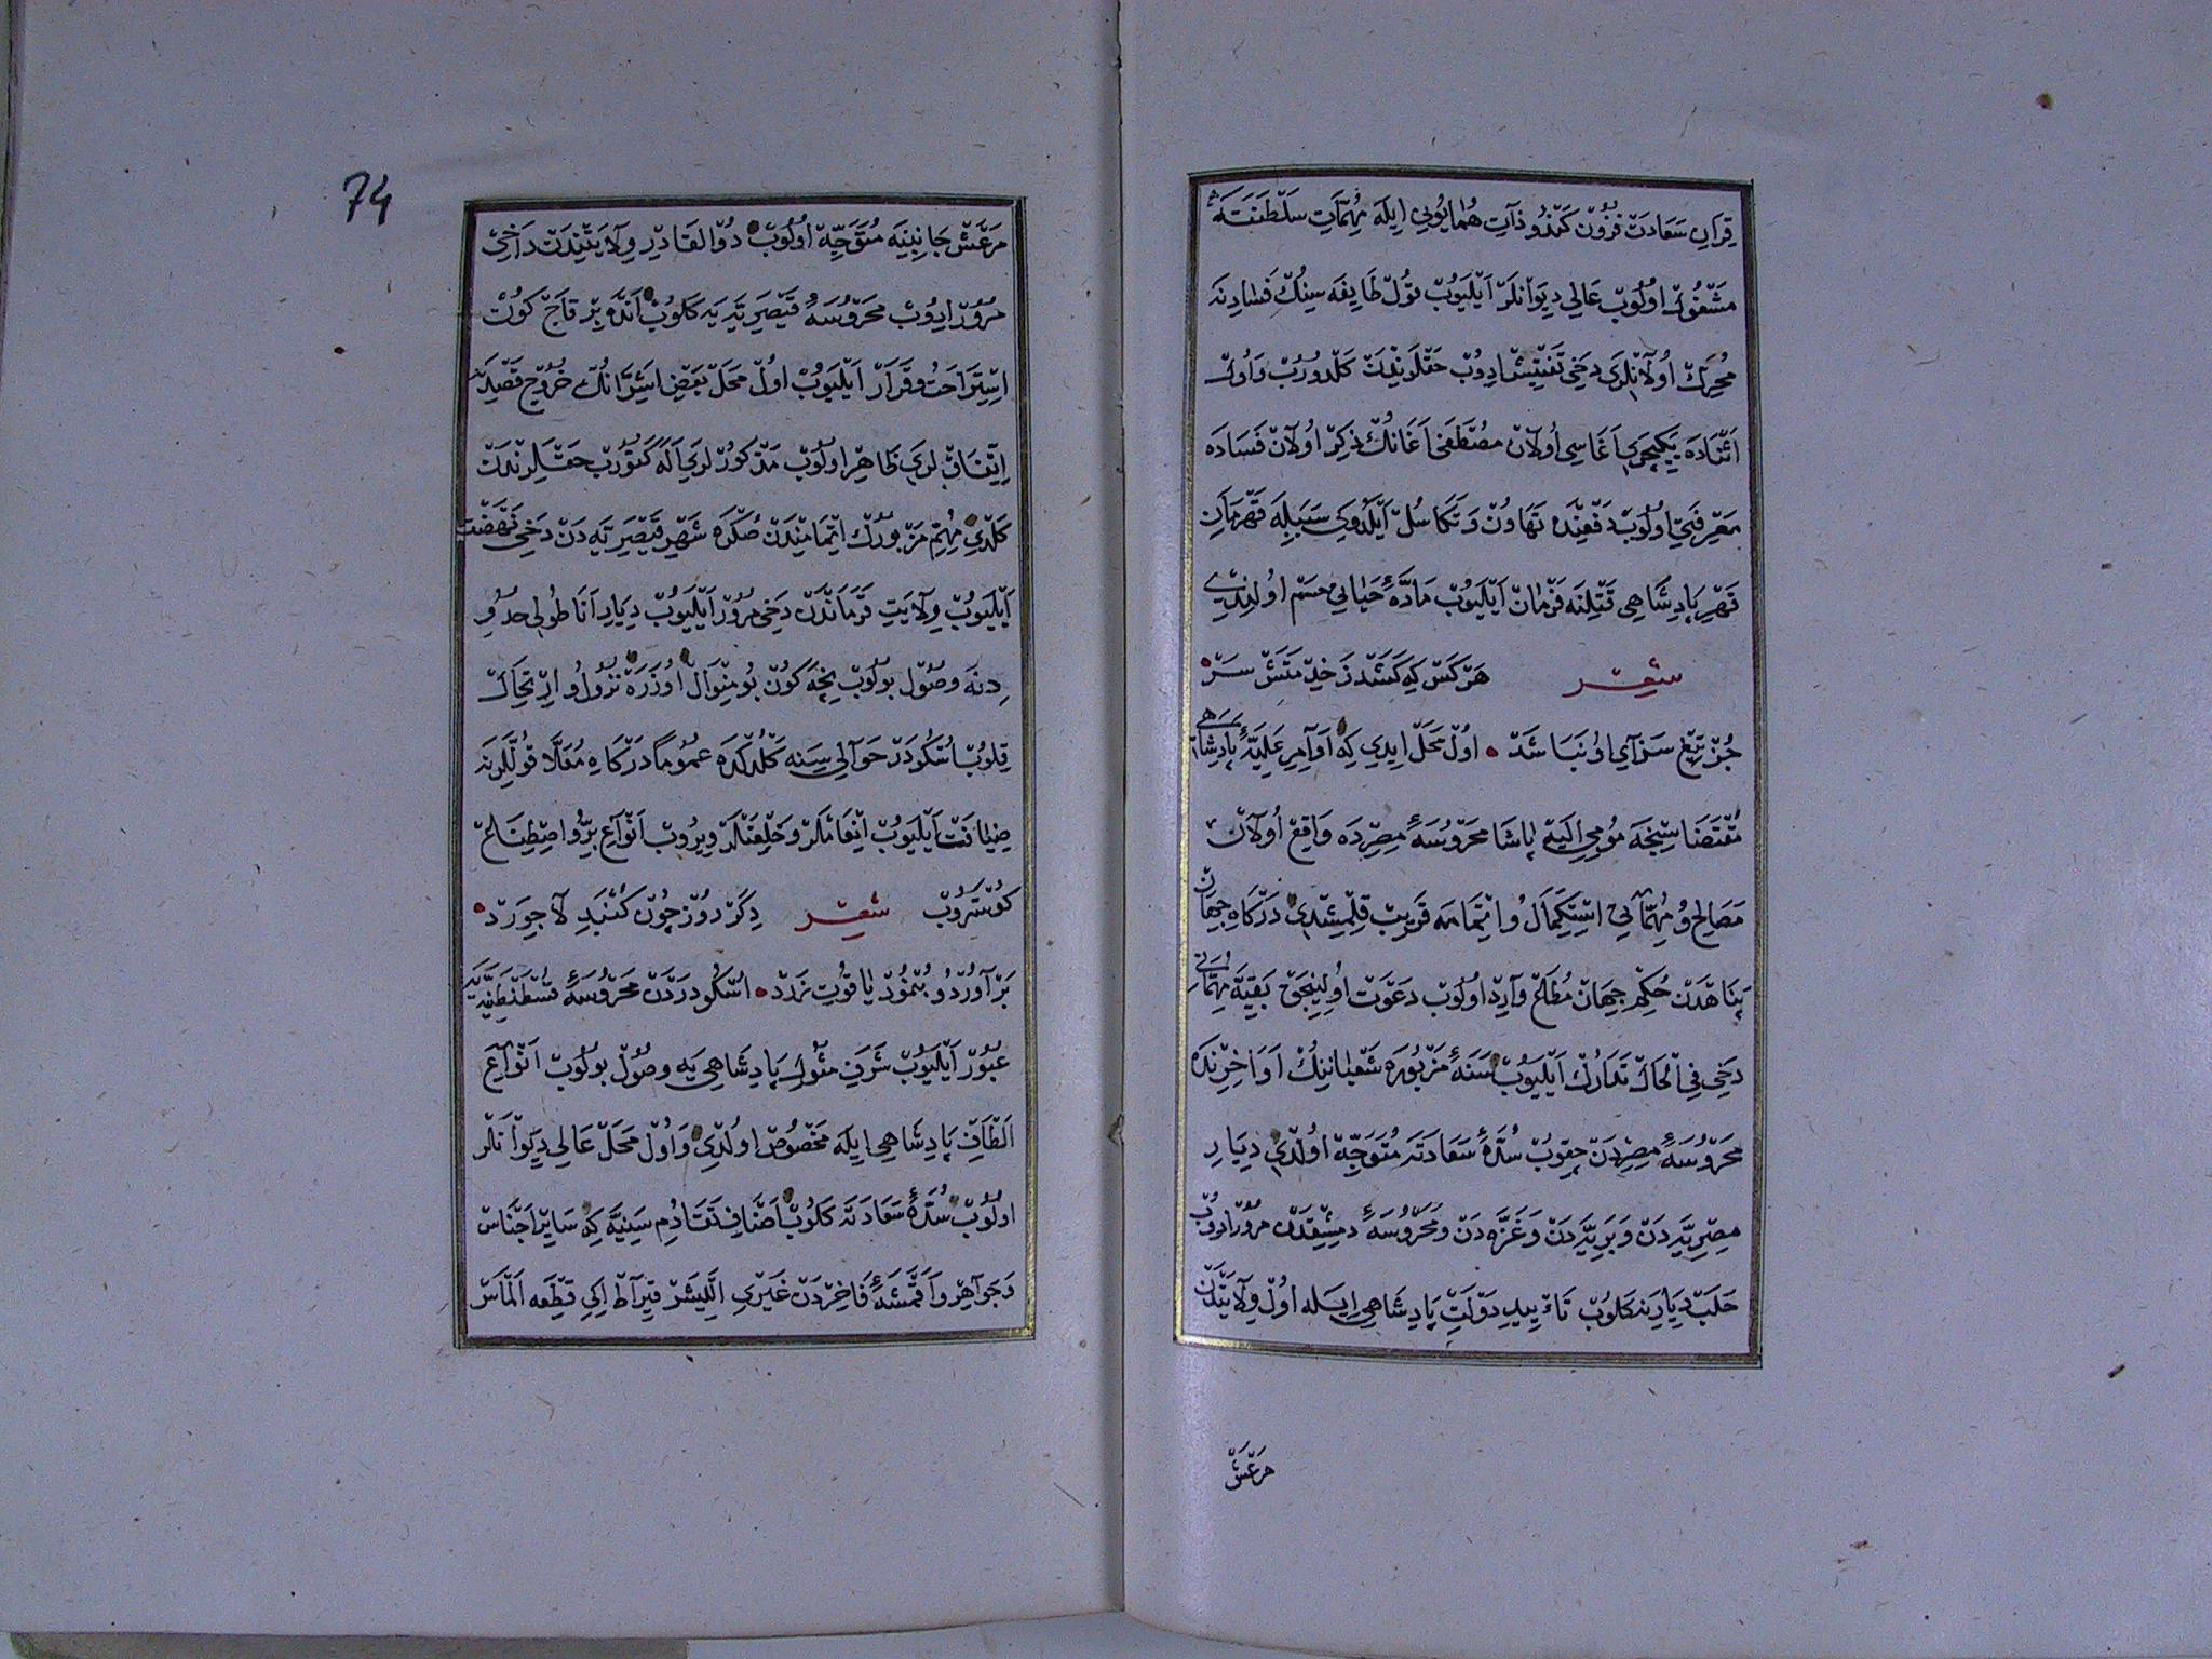 قِرَانِ سَعَادَتْ فُزُونْ كَنْدُو ذَاتِ هُمَايُونِى اِيلَهْ مُهِمَّاتِ سَلْطَنَتَهْ
مَشْغُولْ اُولُوبْ عَالِى دِيوَانْلَرْ اَيْلَيُوبْ تُولْ طَايِفَه سِينُكْ فَسَادِنَه
مُحَرِّكْ اُولَانْلَرِى دَخِى تَفْتِيشْ اِدُوبْ حَقْلَرِنْدَنْ كَلْدُورُبْ وَاُولْ
اَثْنَادَه يَكِيچَرِى اَغَاسِى اُولَانْ مُصْطَفَى اَغَانُكْ ذِكِرْ اُولَانْ فَسَادَه
مَعْرِفَتِى اُولُوبْ دَفْعِنْدَه تَهَاوُنْ وَتَكَاسُلْ اَيْلَدُوكِى سَبَبِلَه قَهْرَمَانِ
قَهْرِ پَادِشَاهِى قَتْلِنَه فَرْمَانْ اَيْلَيُوبْ مَادَّهٔ حَيَاتِى حَسْم اُولِنْدِى
شعر هَرْ كَسْ كِه كَشَدْ زَخِدْمَتَشْ سَرْ
جُزْ تِيغْ سَزَاىِ اُو نَبَاشَدْ اُولْ مَحَلْ اِيدِى كِه اَوَامِرِ عَلِيَّهٔ پَادِشَاهِى
مُقْتَضَاسِنْجَه مُومِى اِلَيْه پَاشَا مَحْرُوسَهٔ مِصِرْدَه وَاقِعْ اُولَانْ
مَصَالِحْ وُ مُهِمَّاتِى اسْتِكْمَالْ وُ اِتْمَامَه قَرِيبْ قِلْمِشْدِى دَرْكَاهِ جِهَانْ
پَنَاهْدَنْ حُكْمِ جِهَانْ مُطَاعْ وَارِدْ اُولُوبْ دَعْوَتْ اُولِينْجَقْ بَقِيَّهٔ مُهِمَّاتِى
دَخِى فِى الْحَالْ تَدَارُكْ اَيْلَيُوبْ سَنَهٔ مَزْبُورَه شَعْبَانِينُكْ اَوَاخِرِنْدَه
مَحْرُوسَهٔ مِصِرْدَنْ چِقُوبْ سُدَّهٔ سَعَادَتَه مُتَوَجِّهْ اُولْدِى دِيَارِ
مِصِرِيَّه دَنْ وَبَرِيَّه دَنْ وَغَزَّه دَنْ وَمَحْرُوسَهٔ دِمِشِقْدَنْ مُرُورْ اِدُوبْ
حَلَبْ دِيَارِينَه كَلُوبْ تَاْيِيدِ دَوْلَتِ پَادِشَاهِى اِيلَه اُولْ وِلَايَتْدَنْ
مَرْعَشْ
74
مَرْعَشْ جَانِبِنَه مُتَوَجِّهْ اُولُوبْ ذُو الْقَادِرْ وِلَايَتِنْدَنْ دَاخِى
مُرُورْ اِدُوبْ مَحْرُوسَهٔ قَيْصَرِيَّه يَه كَلُوبْ اَنْدَه بِرْ قَاچْ كُونْ
اِسْتِرَاحَتْ وُ قَرَارْ اَيْلَيُوبْ اُولْ مَحَلْ بَعْضِ اَشِرَّانُكْ خُرُوجْ قَصْدِنَه
اِتِّفَاقْلَرِى ظَاهِرْ اُولُوبْ مَذْكُورْلَرِى اَلَه كَتُورُبْ حَقْلَرِنْدَنْ
كَلْدِى مُهِمِّ مَزْبُورُكْ اِتْمَامِنْدَنْ صُكْرَه شَهْرِ قَيْصَرِيَّه دَنْ دَخِى نَهْضَتْ
اَيْلَيُوبْ وِلَايَتِ قَرَمَانْدَنْ دَخِى مُرُورْ اَيْلَيُوبْ دِيَارِ اَنَاطُولِى حُدُو
دِنَه وُصُولْ بُولُوبْ نِيجَه كُونْ بُو مِنْوَالْ اُوزَرَه نُزُولْ وُ اِرْتِحَالْ
قِلُوبْ اُسْكُودَرْ حَوَالِى سِنَه كَلْدُكْدَه عُمُومًا دَرْكَاهِ مُعَلَّا قُوللَّرِنَه
ضِيَافَتْ اَيْلَيُوبْ اِنْعَامْلَرْ وَخِلْعَتْلَرْ وِيرُوبْ اَنْوَاعِ بِرّ وُ اصْطِنَاعْ
كُوسْتَرُوبْ شعر دِكَرْ رُوزْ چُونْ كُنْبَدِ لَاجِوَرْدْ
بَرْ آوَرْدْ وُ بِنْمُودْ يَاقُوتِ زَرْدْ اُسْكُودَرْدَنْ مَحْرُوسَهٔ قُسْطَنْطِنِيَّه يَه
عُبُورْ اَيْلَيُوبْ شَرَفِ مُثُولِ پَادِشَاهِى يَه وُصُولْ بُولُوبْ اَنْوَاعِ
اَلْطَافِ پَادِشَاهِى اِيلَه مَخْصُوصْ اُولْدِى وَاُولْ مَحَلْ عَالِى دِيوَانْلَرْ
اُولُوبْ سُدَّهٔ سَعَادَتَه كَلُوبْ اَصْنَافِ تَقَادُمِ سَنِيَّه كِه سَايِرْ اَجْنَاسْ
وَجَوَاهِرْ وَاَقْمِشَهٔ فَاخِرَدَنْ غَيْرِى اَللِّيشَرْ قِيرَاطْ اِكِى قِطْعَه اَلْمَاسْ